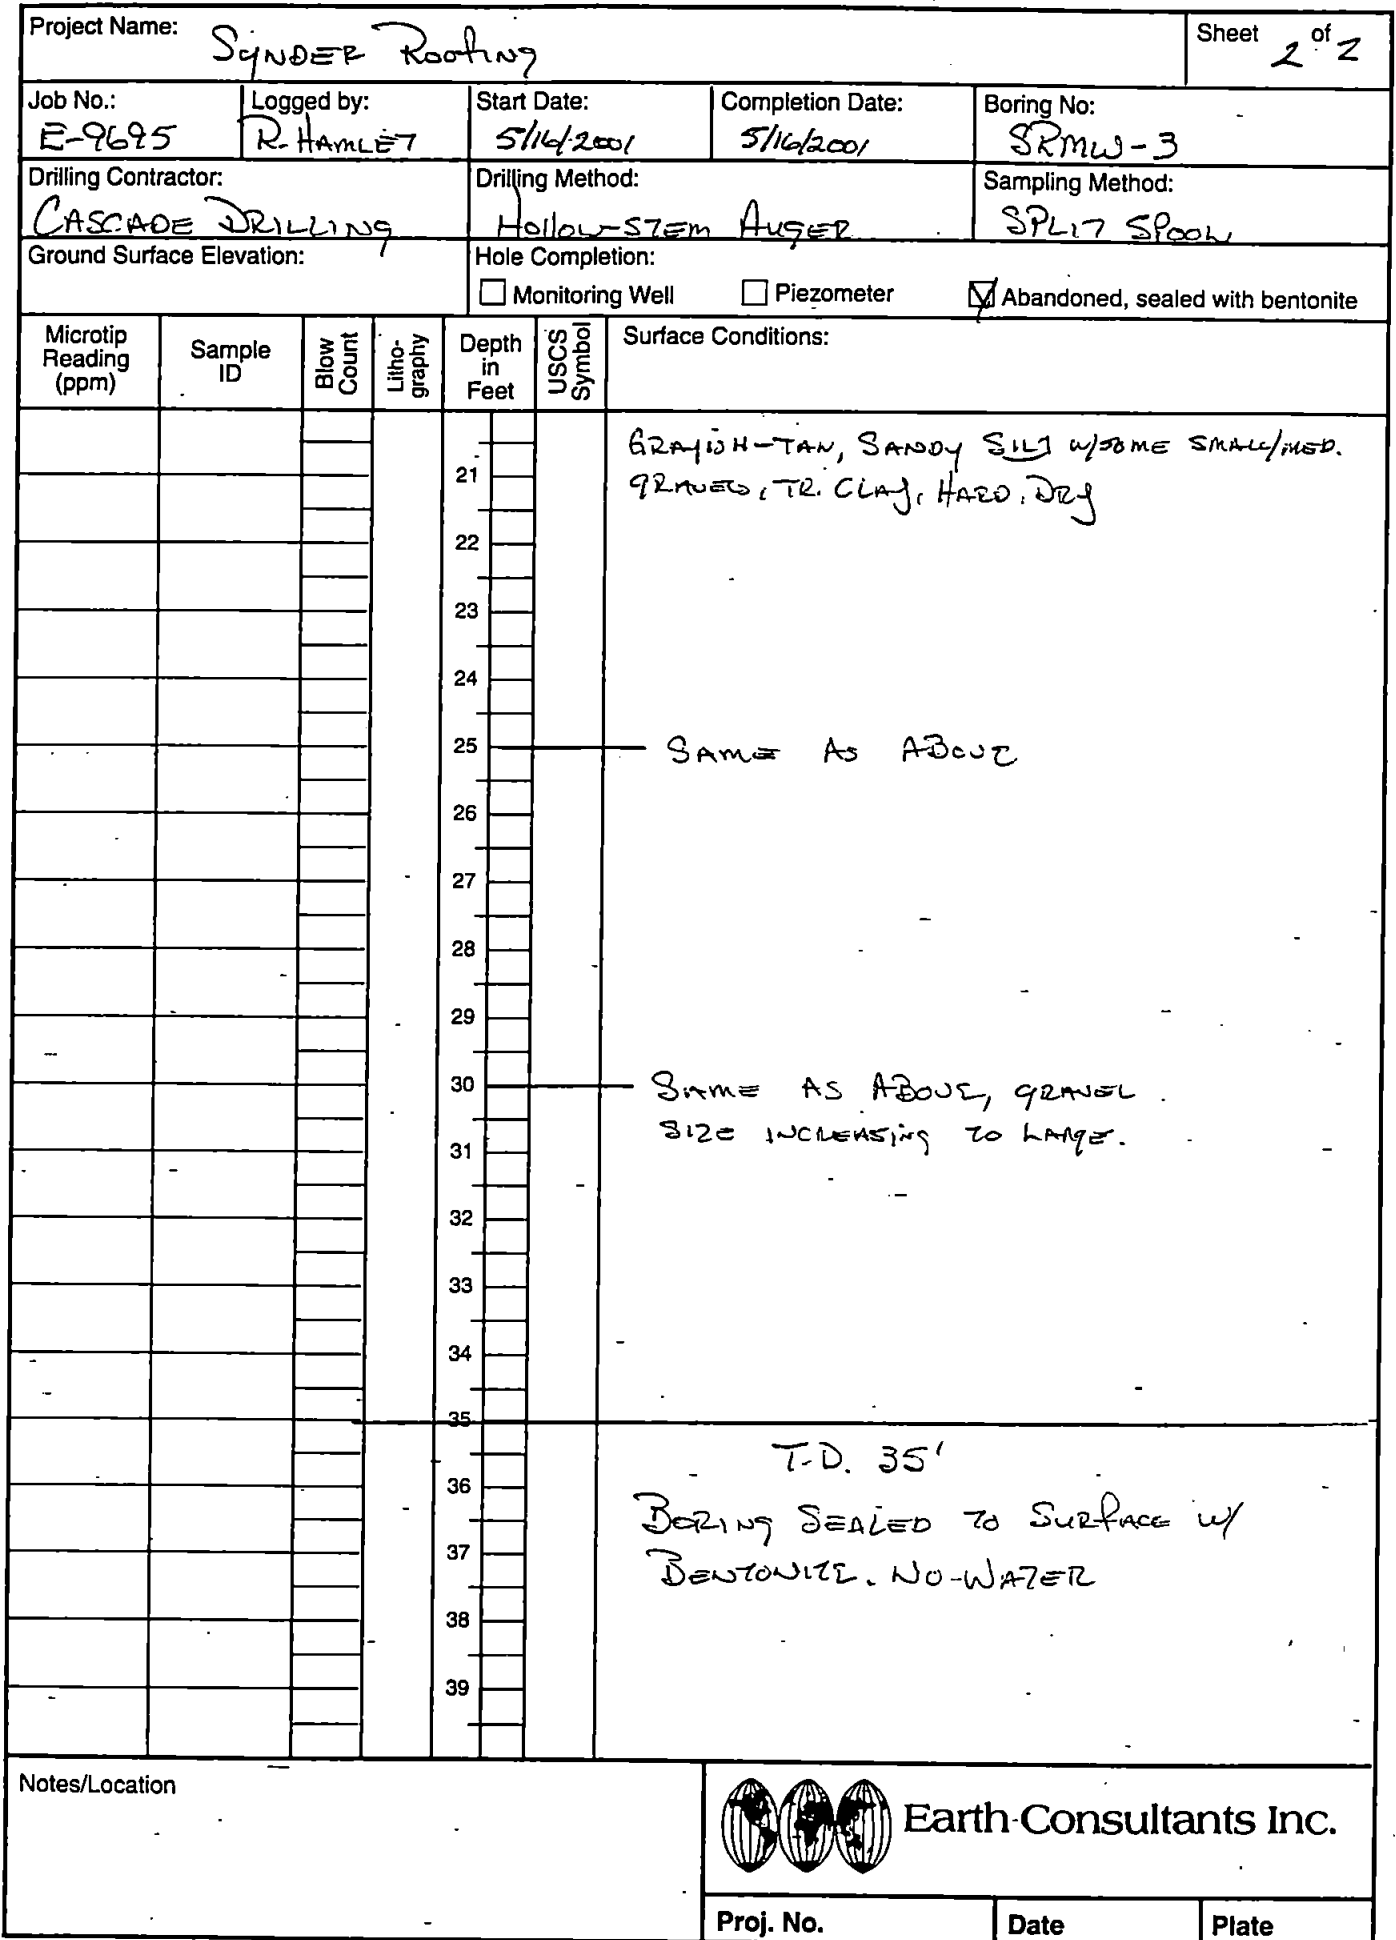 Project Name: Synder Roofing
Sheet 2 of 2
Job No.: E-9695
Logged by: R. Hamlet
Start Date: 5/16/2001
Completion Date: 5/16/2001
Boring No: SRMW-3
Drilling Contractor: Cascade Drilling
Drilling Method: Hollow-Stem Auger
Sampling Method: Split Spoon
Ground Surface Elevation:
Hole Completion:
☐ Monitoring Well ☐ Piezometer ☑ Abandoned, sealed with bentonite
Microtip Reading (ppm)
Sample ID
Blow Count
Litho-graphy
Depth in Feet
USCS Symbol
Surface Conditions:
Grayish-Tan, Sandy Silt w/some small/med.
21 gravels, tr. clay, hard, dry
22
23
24
25 Same as above
26
27
28
29
30 Same as above, gravel
size increasing to large.
31
32
33
34
35
T.D. 35'
36
Boring Sealed to Surface w/
37 Bentonite. No-Water
38
39
Notes/Location
Earth Consultants Inc.
Proj. No.
Date
Plate